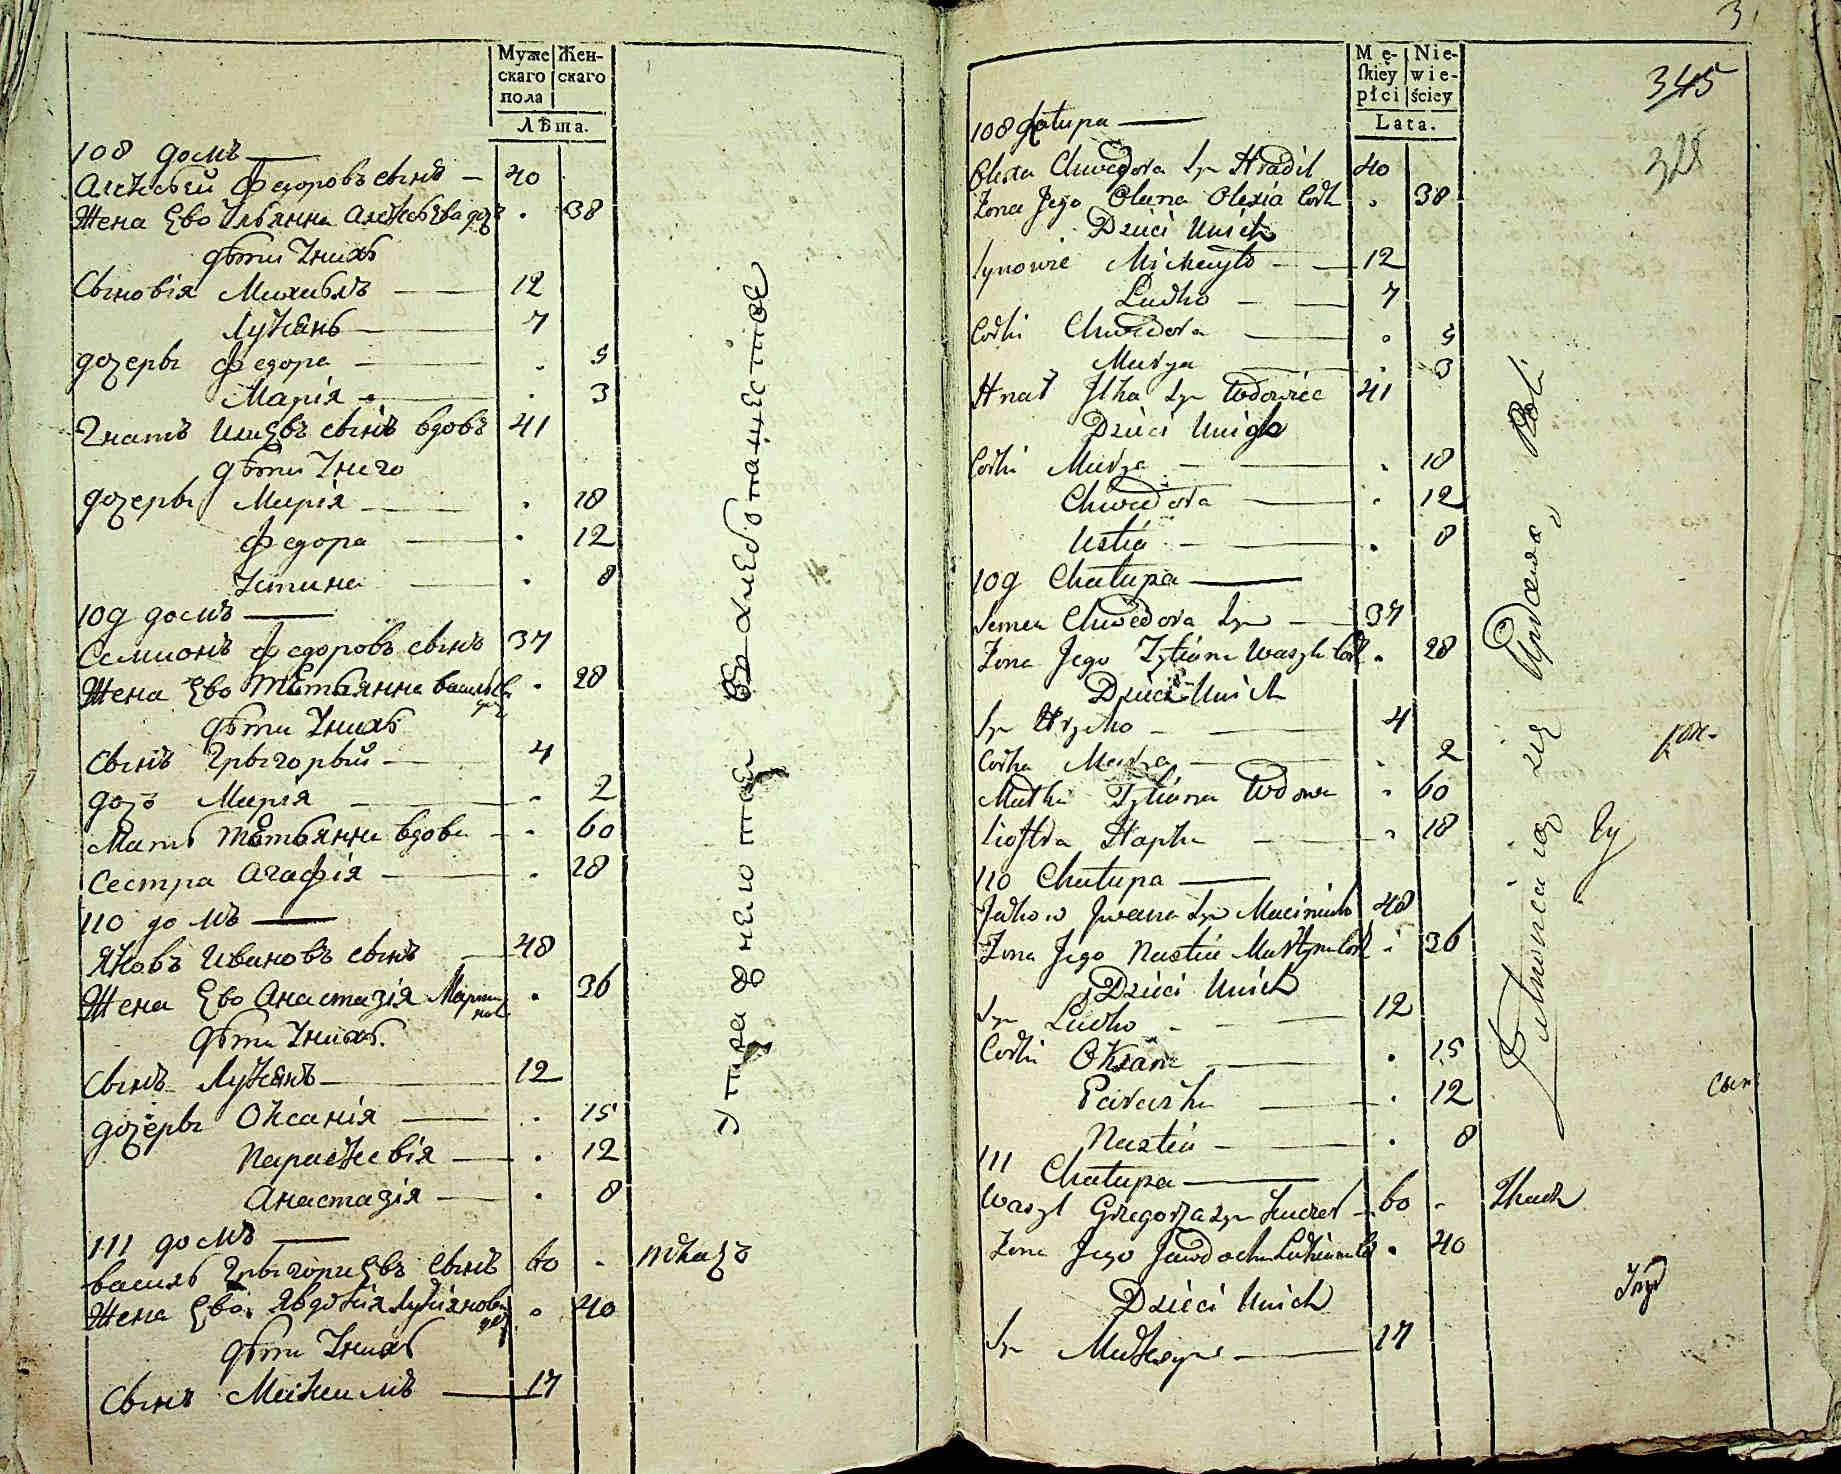 Муже Жен-
скаго скаго
пола
Лѣта.
108 домъ
Алексѣй Федоровъ сынъ 40
Жена Ево Ульянна Алексѣева доч 38
дѣти Унихъ
Сыновія Михаилъ 12
Лукянъ 7
дочеры Федора 5
Марія 3
Игнатъ Илиевъ сынъ вдовъ 41
дѣти Унего
дочеры Марія 18
Федора 12
Устина 8
109 домъ
Семионъ Федоровъ сынъ 37
Жена Ево Тѣтьянна василева доч 28
дѣти Унихъ
сынъ Грыгорый 4
дочъ Марія 2
Мать Тѣтьянна вдова 60
Сестра Агафія 28
110 домъ
Яковъ Ивановъ сынъ 48
Жена Ево Анастазія Мартинова 36
дѣти Унихъ
сынъ Лукянъ 12
дочеры Оксанія 15
Параскевія 12
Анастазія 8
111 домъ
василь Грыгориевъ сынъ 60 ткачъ
Жена Ево Явдокія Лукіянова доч 40
дѣти Унихъ
Сынъ Максимъ 17
Упра
въ хлебопашестве
3
345
328
Mę- Nie-
skiey wie-
płci ściey
Lata.
108 Chatupa
Olexa Chwedora Syn Hradil 40
Zona Jego Olana Olexia Cork 38
Dzieci Unich
Synowie Michayło 12
Ludko 7
Corki Chwedora 5
Marya 3
Hnat Jlka Syn Wdowiec 41
Dzieci Unigo
Corki Marya 18
Chwedora 12
Ustia 8
109 Chatupa
Semen Chwedora Syn 37
Zona Jego Tytiana Waszla Cork 28
Dzieci Unich
Syn Hryhko 4
Corka Marya 2
Matka Tytiana Wdowa 60
Siostra Hapka 18
110 Chatupa
Jakow Jwana Syn 48
Zona Jego Nastia Martyna Cork 36
Dzieci Unich
Syn Ludko 12
Corki Oksana 15
Paraska 12
Nastia 8
111
Chatupa
Waszyl Gregorza Syn Kuczer 60 Tkacz
Zona Jego Jawdocha Lukiana Cor 40
Dzieci Unich
Syn Maksym 17
Zatrudnia się Uprawą Roli